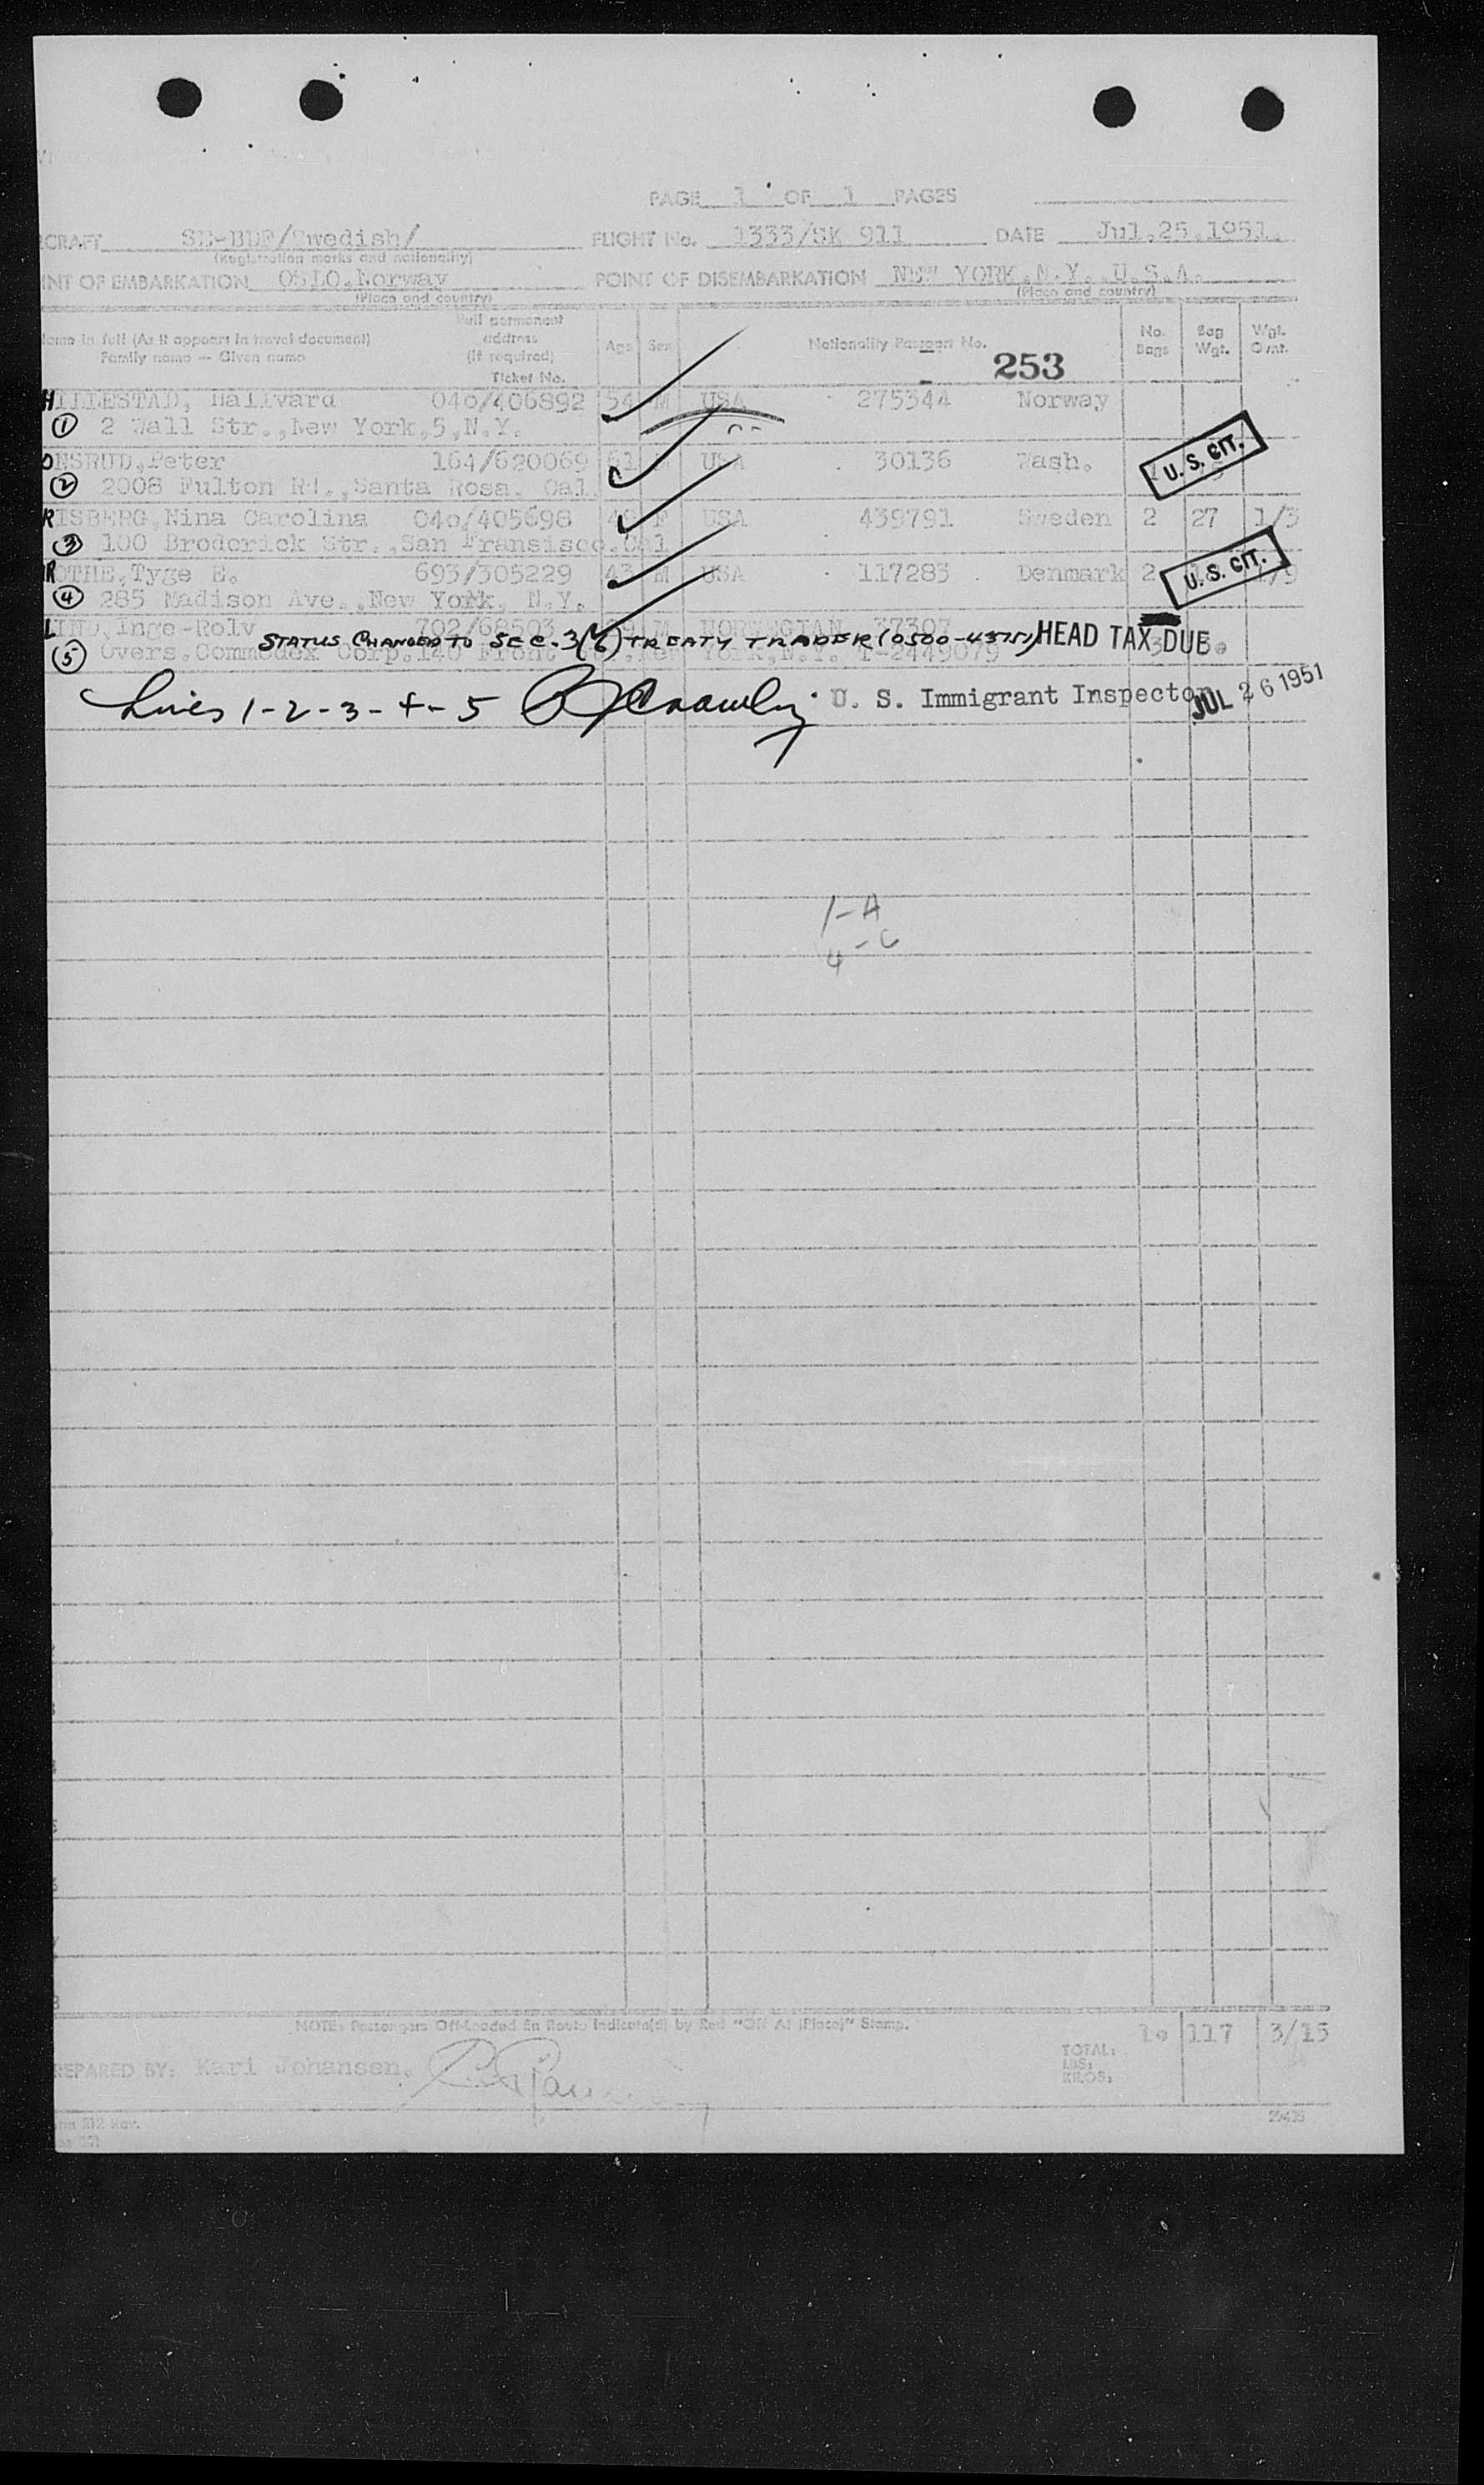 PAGE 1 OF 1 PAGES
CRAFT SE-BDF/Swedish/ FLIGHT No. 1333/SK 911 DATE Jul.25.1951.
(Registration marks and nationality)
INT OF EMBARKATION OSLO.Norway POINT OF DISEMBARKATION NEW YORK.N.Y.,U.S.A.
(Place and country) (Place and country)
ame in full (As it appears in travel document) Full permanent address (If required) Age Sex Nationality Passport No. No. Bags Bag Wgt. Wgt.
Family name — Given name Ticket No. 253
HILLESTAD, Hallvard 040/406892 54 M USA 275344 Norway
① 2 Wall Str.,New York,5,N.Y.
ONSRUD,Peter 164/620069 61 USA 30136 Wash. U.S. CIT.
② 2008 Fulton Rd.,Santa Rosa. Cal
RISBERG,Nina Carolina 040/405698 F USA 439791 Sweden 2 27 1/3
③ 100 Broderick Str.,San Fransisco.Cal
ROTHE,Tyge E. 693/305229 43 M USA 117283 Denmark 2 U.S. CIT.
④ 285 Madison Ave.,New York, N.Y.
LIND,Inge-Rolv 702/68503 39 M NORWEGIAN 37307
STATUS CHANGED TO SEC. 3(6) TREATY TRADER (0500-43751) HEAD TAX DUE.
⑤ Overs.Commodex Corp.140 Front York,N.Y. T-2449079 3
Lines 1-2-3-4-5 U. S. Immigrant Inspector JUL 26 1951
1-A
4-C
NOTE: Passengers Off-Loaded En Route Indicate(d) by Red "Off At (Place)" Stamp.
TOTAL: 10 117 3/15
LBS:
KILOS:
REPARED BY: Kari Johansen.
rm 212 Rev.